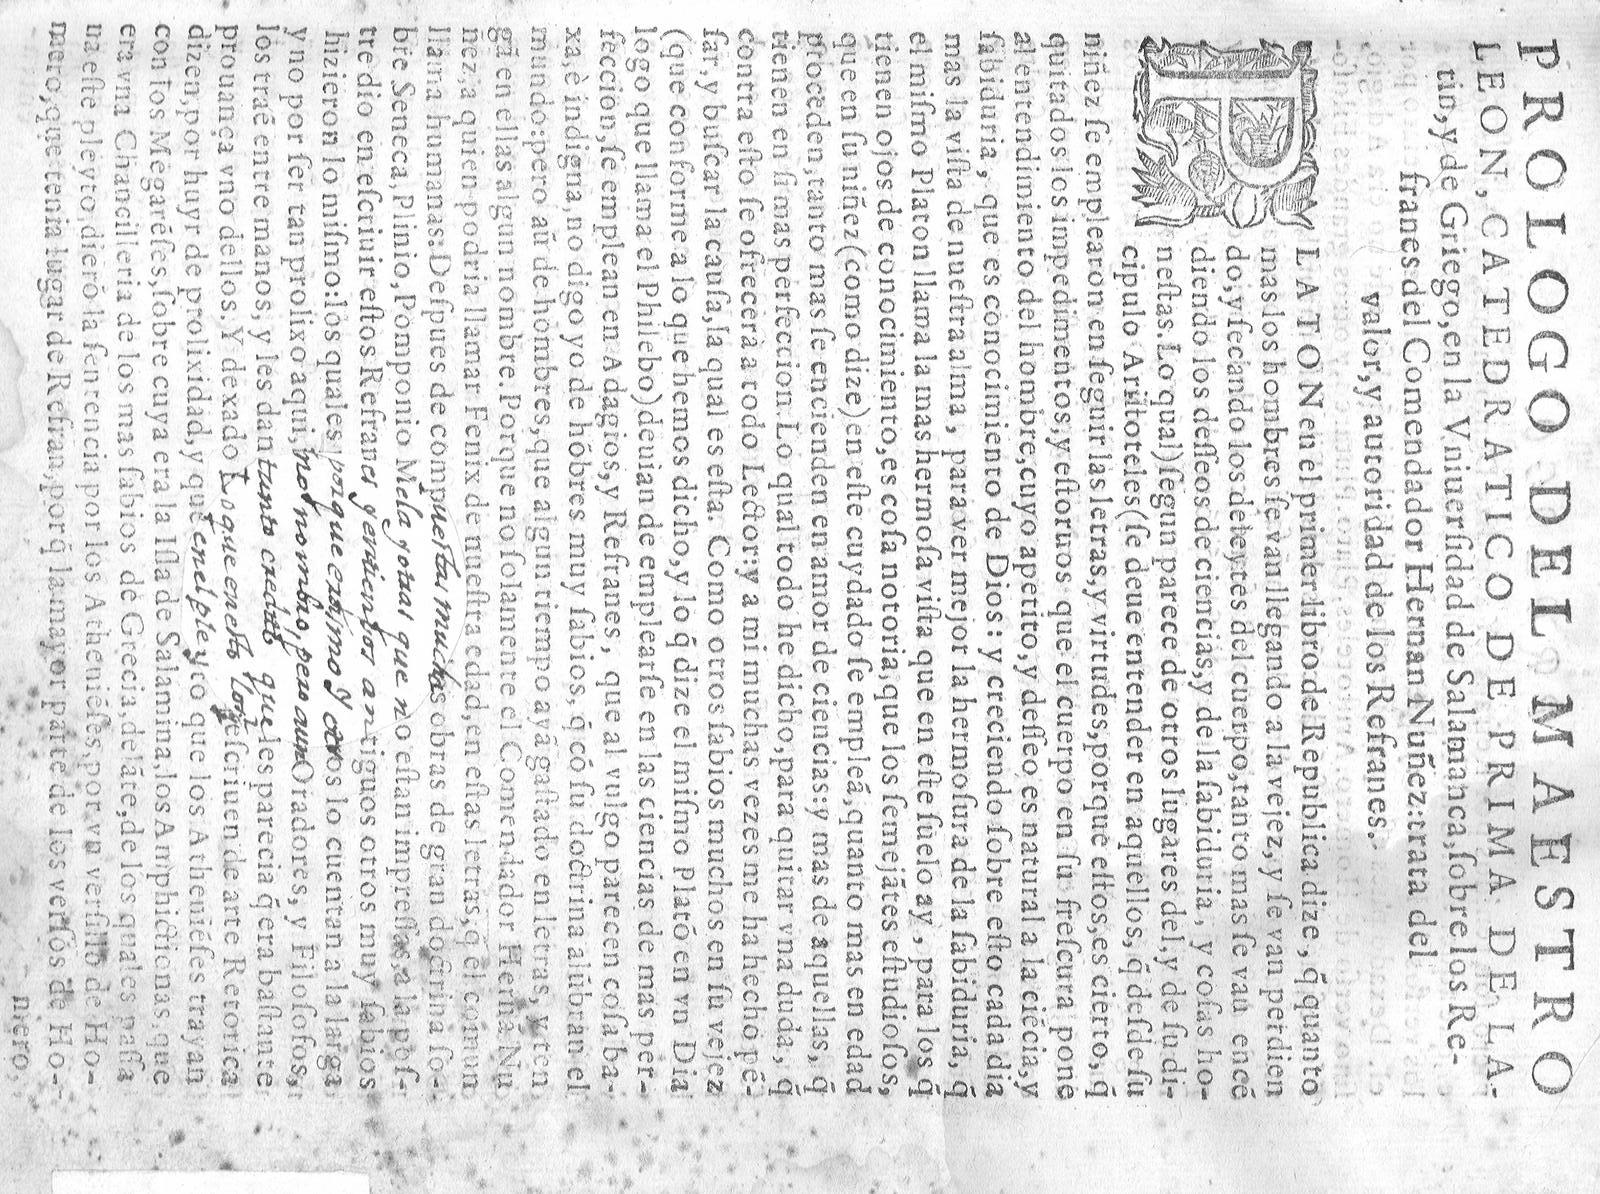 PROLOGO DEL MAESTRO
LEON, CATEDRATICO DE PRIMA DE LA-
tin, y de Griego, en la Vniuersidad de Salamanca, sobre los Re-
franes del Comendador Hernan Nuñez: trata del
valor, y autoridad de los Refranes.
PLATON en el primer libro de Republica, dize, q̃ quanto
mas los hombres se van llegando a la vejez, y se van perdien
do, y seciando los deleytes del cuerpo, tanto mas se van encẽ
diendo los desseos de ciencias, y de la sabiduria, y cosas ho-
nestas. Lo qual) segun parece de otros lugares del, y de su di-
cipulo Aristoteles (se deue entender en aquellos, q̃ desde su
niñez se emplearon en seguir las letras, y virtudes, porque estos, es cierto, q̃
quitados los impedimentos, y estoruos que el cuerpo en su frescura pone
al entendimiento del hombre, cuyo apetito, y desseo es natural a la ciẽcia, y
sabiduria, que es conocimiento de Dios: y creciendo sobre esto cada dia
mas la vista de nuestra alma, para ver mejor la hermosura de la sabiduria, q̃
el mismo Platon llama la mas hermosa vista que en este suelo ay, para los q̃
tienen ojos de conocimiento, es cosa notoria, que los semejãtes estudiosos,
que en su niñez (como dize) en este cuydado se empleã, quanto mas en edad
proceden, tanto mas se encienden en amor de ciencias: y mas de aquellas, q̃
tienen en si mas perfeccion. Lo qual todo he dicho, para quitar vna duda, q̃
contra esto se ofrecera a todo Lector: y a mi muchas vezes me ha hecho pẽ-
sar, y buscar la causa, la qual es esta. Como otros sabios muchos en su vejez
(que conforme a lo que hemos dicho, y lo q̃ dize el mismo Platõ en vn Dia
logo que llama el Philebo) deuian de emplearse en las ciencias de mas per-
feccion, se emplean en Adagios, y Refranes, que al vulgo parecen cosa ba-
xa, è indigna, no digo yo de hõbres muy sabios, q̃ cõ su doctrina alũbran el
mundo: pero aũ de hombres, que algun tiempo ayã gastado en letras, y ten
gã en ellas algun nombre. Porque no solamente el Comendador Hernã Nu
nez, a quien podria llamar Fenix de nuestra edad, en estas letras, q̃ el comun
llama humanas: Despues de compuestas muchas obras de gran doctrina so-
bre Seneca, Plinio, Pomponio Mela y otras que no estan impressas a la pos-
tre dio en escriuir estos Refranes y antiguos otros muy sabios
hizieron lo mismo: los quales porque estimo y otros lo cuentan a la larga
y no por ser tan prolixo aqui, no nombro, pero aun Oradores, y Filosofos,
los traẽ entre manos, y les dan tanto credito que les parecia q̃ era bastante
prouança vno dellos. Y dexado lo que en esto los q̃ escriuen de arte Retorica
dizen, por huyr de prolixidad, y que en el pleyto que los Atheniẽses trayan
con los Megarẽses, sobre cuya era la Isla de Salamina, los Amphictionas, que
era vna Chancilleria de los mas sabios de Grecia, delãte, de los quales passa
ua este pleyto, dierõ la sentencia por los Atheniẽses, por vn versillo de Ho-
mero, que tenia lugar de Refran, por q̃ la mayor parte de los versos de Ho-
mero,